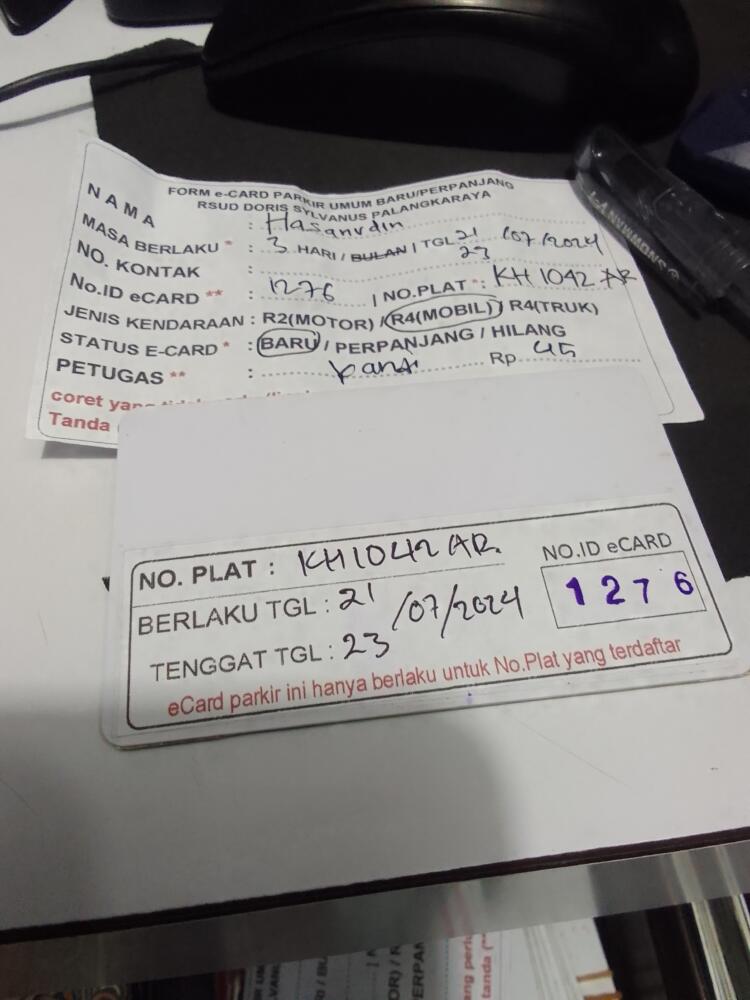 FORM e-CARD PARKIR UMUM BARU/PERPANJANG
RSUD DORIS SYLVANUS PALANGKARAYA
NAMA : Hasanudin
MASA BERLAKU * : 3 HARI / BULAN | TGL 21 /07/2024
23
NO. KONTAK :
No.ID eCARD ** : 1276 | NO.PLAT *: KH 1042 AR
JENIS KENDARAAN : R2(MOTOR) / R4(MOBIL) / R4(TRUK)
STATUS E-CARD * : BARU / PERPANJANG / HILANG
PETUGAS ** : Rp 45
coret yang
Tanda
NO. PLAT : KH 1042 AR.
NO.ID eCARD
BERLAKU TGL : 21 /07/2024
1276
TENGGAT TGL : 23
eCard parkir ini hanya berlaku untuk No.Plat yang terdaftar
SNOWMAN